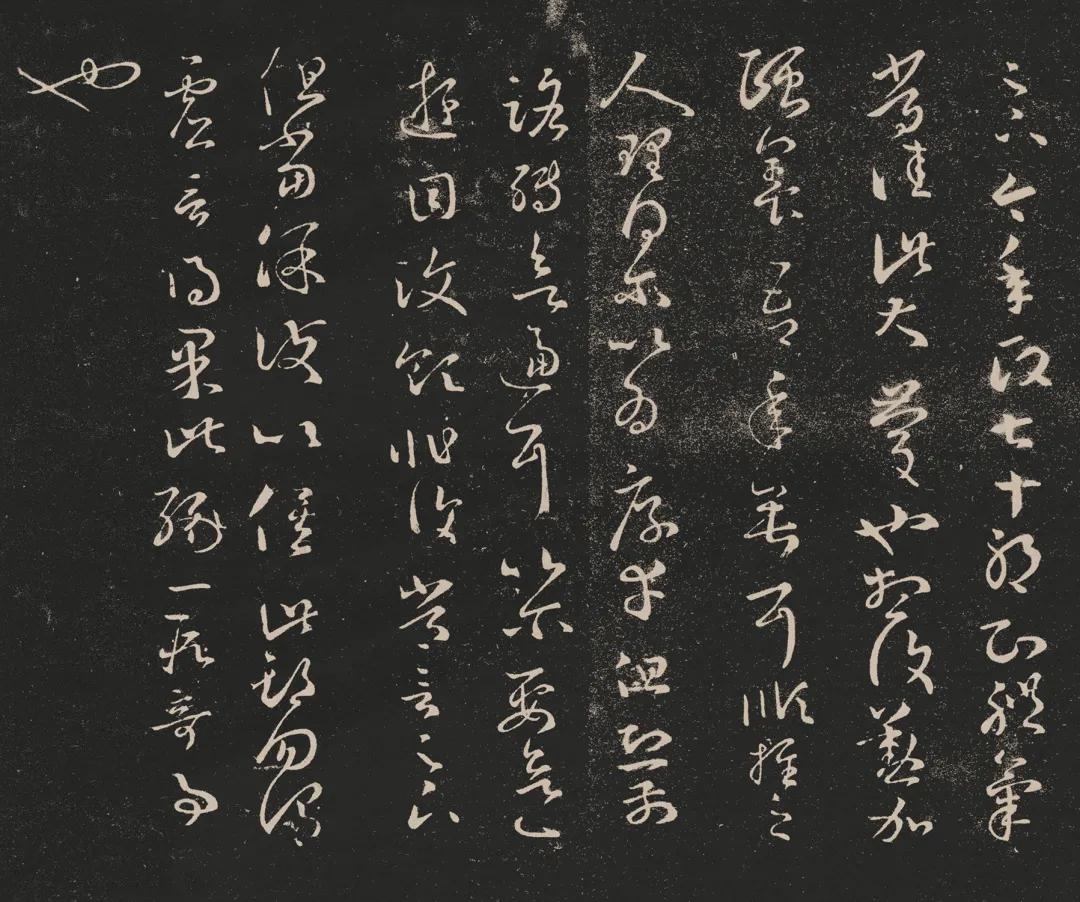 足下今年政七十耶知體氣
常佳此大慶也想復懃加
頤養吾年垂耳順推之
人理得爾以為厚幸但恐前
路轉欲逼耳以爾要欲一
遊目汶領非復常言足下
但當保護以俟此期勿謂
虛言得果此緣一段奇事
也